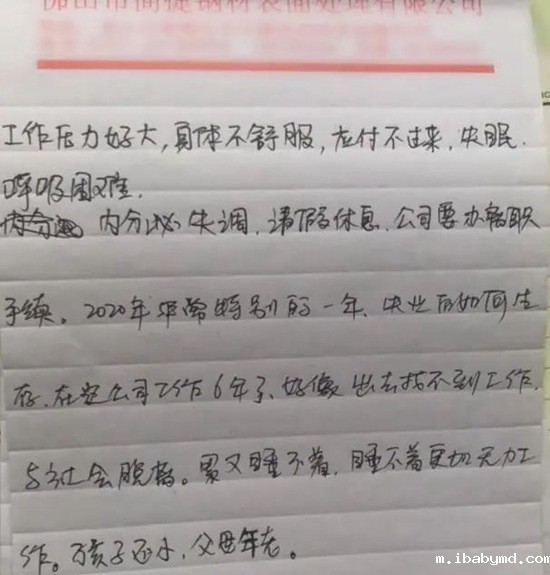 佛山市简捷钢材表面处理有限公司
工作压力好大，身体不舒服，应付不过来，失眠.
呼吸困难.
内分泌失调，请假休息，公司要办离职
手续。2020年非常特别的一年、失业后如何生
存.在这公司工作6年了、好像出去找不到工作，
与社会脱节。累又睡不着，睡不着更加无力工
作。孩子还小，父母年老。
m.ibabymd.com